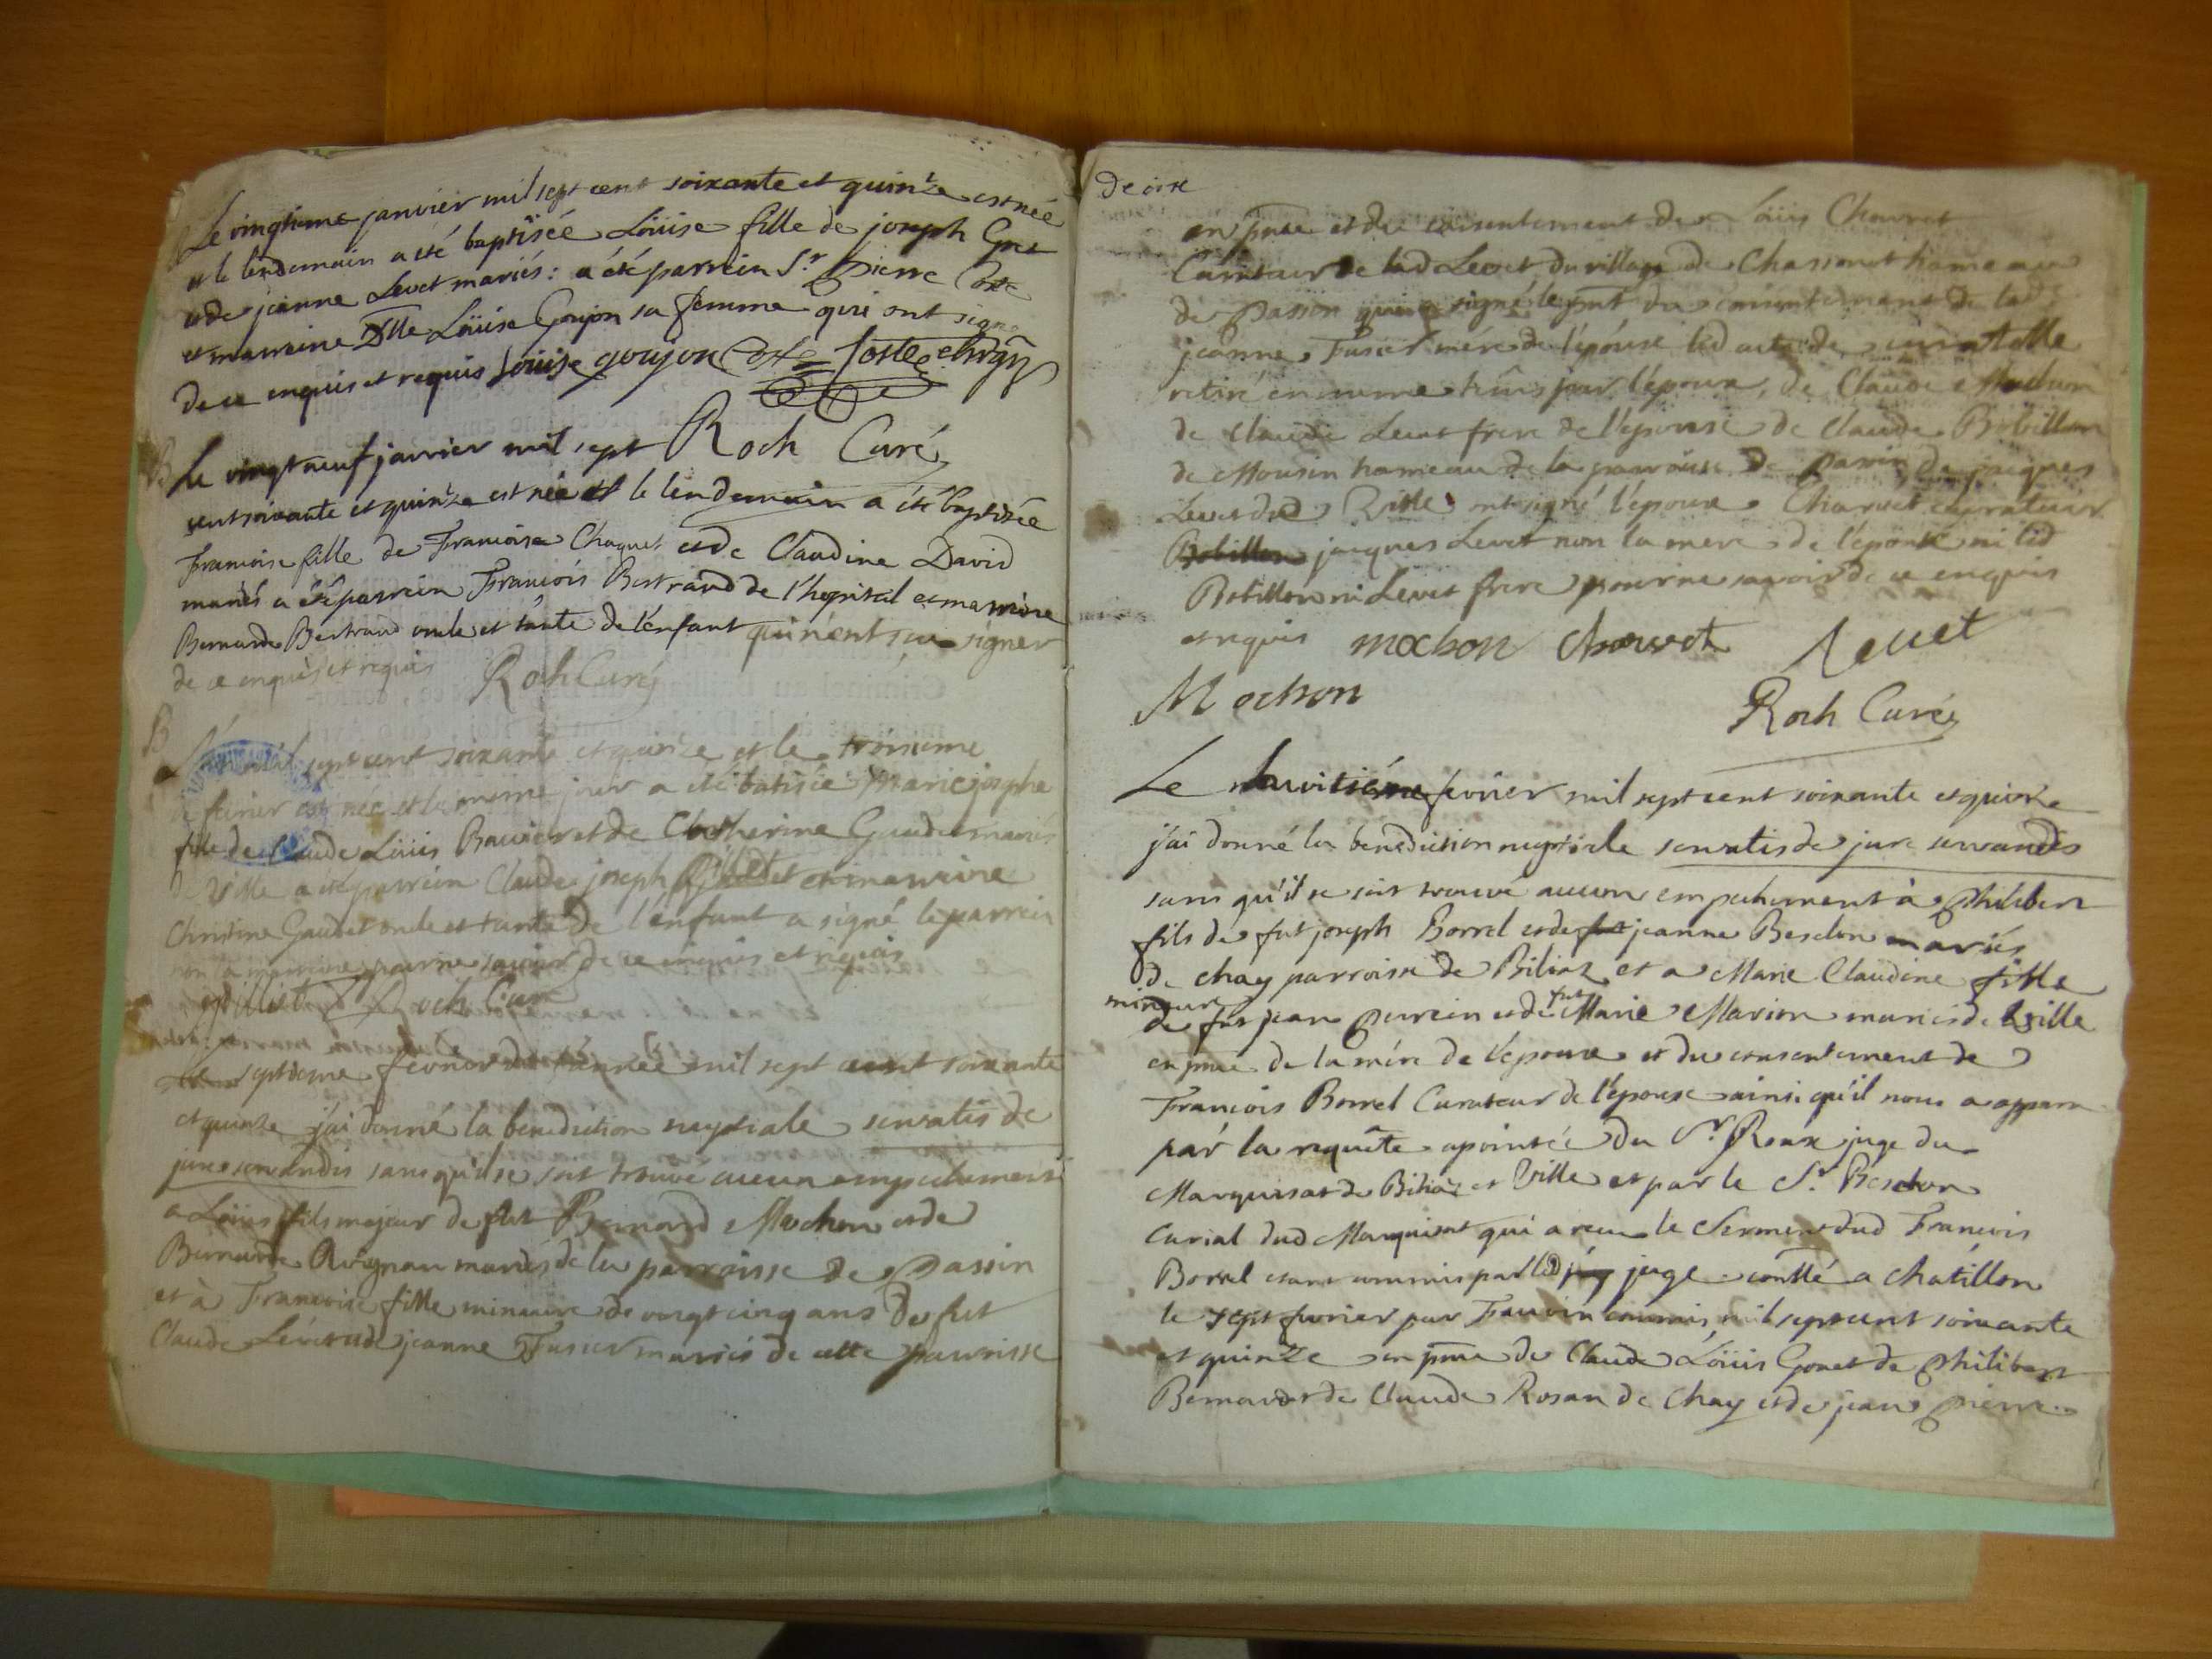 Le vingtieme janvier mil sept cent soixante et quinze est née
et le lendemain a été baptisée Loüise fille de joseph
et de jeanne Levet mariés: a été parrein Sr. pierre Coste
et marreine Dlle Loüise Goujon sa femme qui ont signé
de ce enquis et requis Louise goujon Coste Coste
Roch Curé
B
Le vingt neuf janvier mil sept
cent soixante et quinze est née et le lendemain a été baptisée
francoise fille de Francoise Chaquet et de Claudine David
mariés a été parrein Francois Bertrand de l'hopital et marreine
Bernarde Bertrand oncle et tante de l'enfant qui n'ont scu signer
de ce enquis et requis Roch Curé
B
L'an mil sept cent soixante et quinze et le troisieme
de fevrier est née et le meme jour a été batisée Marie josephe
fille de Claude Loüis et de Chatherine Gaudet mariés
de Ville a été parrein Claude joseph et marreine
Christine Gaudet oncle et tante de l'enfant a signé le parrein
non la marreine pour ne savoir de ce enquis et requis
Roch Curé
Le septieme fevrier de l'année mil sept cent soixante
et quinze j'ai donné la benediction nuptiale servatis de
jure servandis sans qu'il se soit trouvé aucun empechement
a Loüis fils majeur de fut Bernard Mochon et de
Bernarde mariés de la parroisse de Passin
et à Francoise fille mineure de vingt cinq ans de fut
Claude Levet et de jeanne Fusier mariés de cette parroisse
de oise
en pnce et du consentement de Loüis Charvet
Curateur de lad Levet du village de Chassonet hameau
de Passin qui a signé le pnt du consentement de lad
jeanne Fusier mére de l'épouse led acte de curatelle
retiré en meme tems par l'époux, de Claude Mochon
de Claude Levet frere de l'épouse de Claude Bobillon
de Mousin hameau de la parroisse de Passin de jacques
Levet dud Ville ont signé l'époux Charvet curateur
Bobillon jacques Levet non la mere de l'épouse ni led
Bobillon ni Levet frere pour ne savoir de ce enquis
et requis mochon charvet Levet
Mochon
Roch Curé
Le huvitiéme fevrier mil sept cent soixante et quinze
j'ai donné la benediction nuptiale servatis de jure servandis
sans qu'il se soit trouvé aucun empechement à philibert
fils de fut joseph Borrel et de fut jeanne Beselon mariés
de chay parroisse de Biliaz et a Marie Claudine fille
mineure
fut
de fut jean perrein et de Marie Marion mariés de Ville
en pnce de la mére de l'epoux et du consentement de
Francois Borrel Curateur de l'épouse ainsi qu'il nous a apparu
par la requête apointée du Sr. Roux juge du
Marquisat de Biliaz et Ville et par le Sr. Beselon
curial dud Marquisat qui a recu le serment dud Francois
Borrel etant commis par led jug juge contlé a châtillon
le sept fevrier par Fauvin commis, mil sept cent soixante
et quinze en pnce de Claude Loüis Gonet de philibert
Bernard de Claude Rosan de Chay et de jean pierre